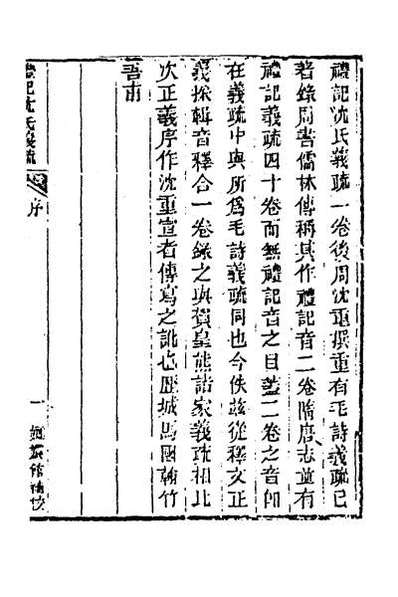 禮記沈氏義疏一卷後周沈重撰重有毛詩義疏已
著錄周書儒林傳稱其作禮記音二卷隋唐志並有
禮記義疏四十卷而無禮記音之目蓋二卷之音卽
在義疏中與所爲毛詩義疏同也今佚兹從釋文正
義採輯音釋合一卷錄之與賀皇熊諸家義疏相比
次正義序作沈重宣者傳寫之訛也歷城馬國翰竹
吾甫
禮記沈氏義疏
序
一